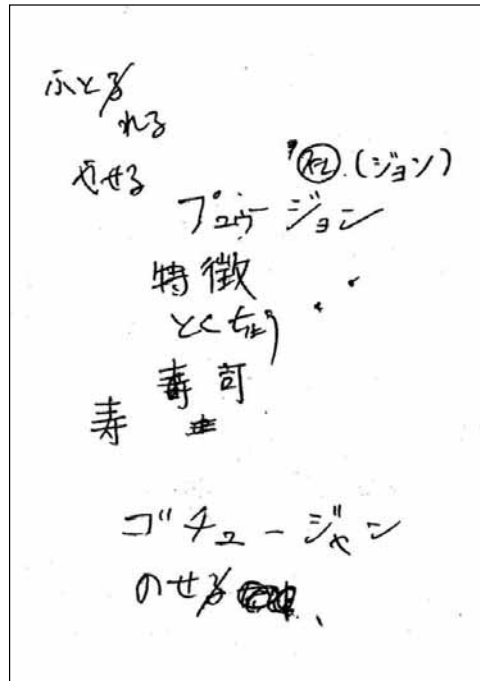 ふとる
れる
やせる
(ジョン)
プュウージョン
特徴
とくちょう
寿司
寿
ゴチュージャン
のせる